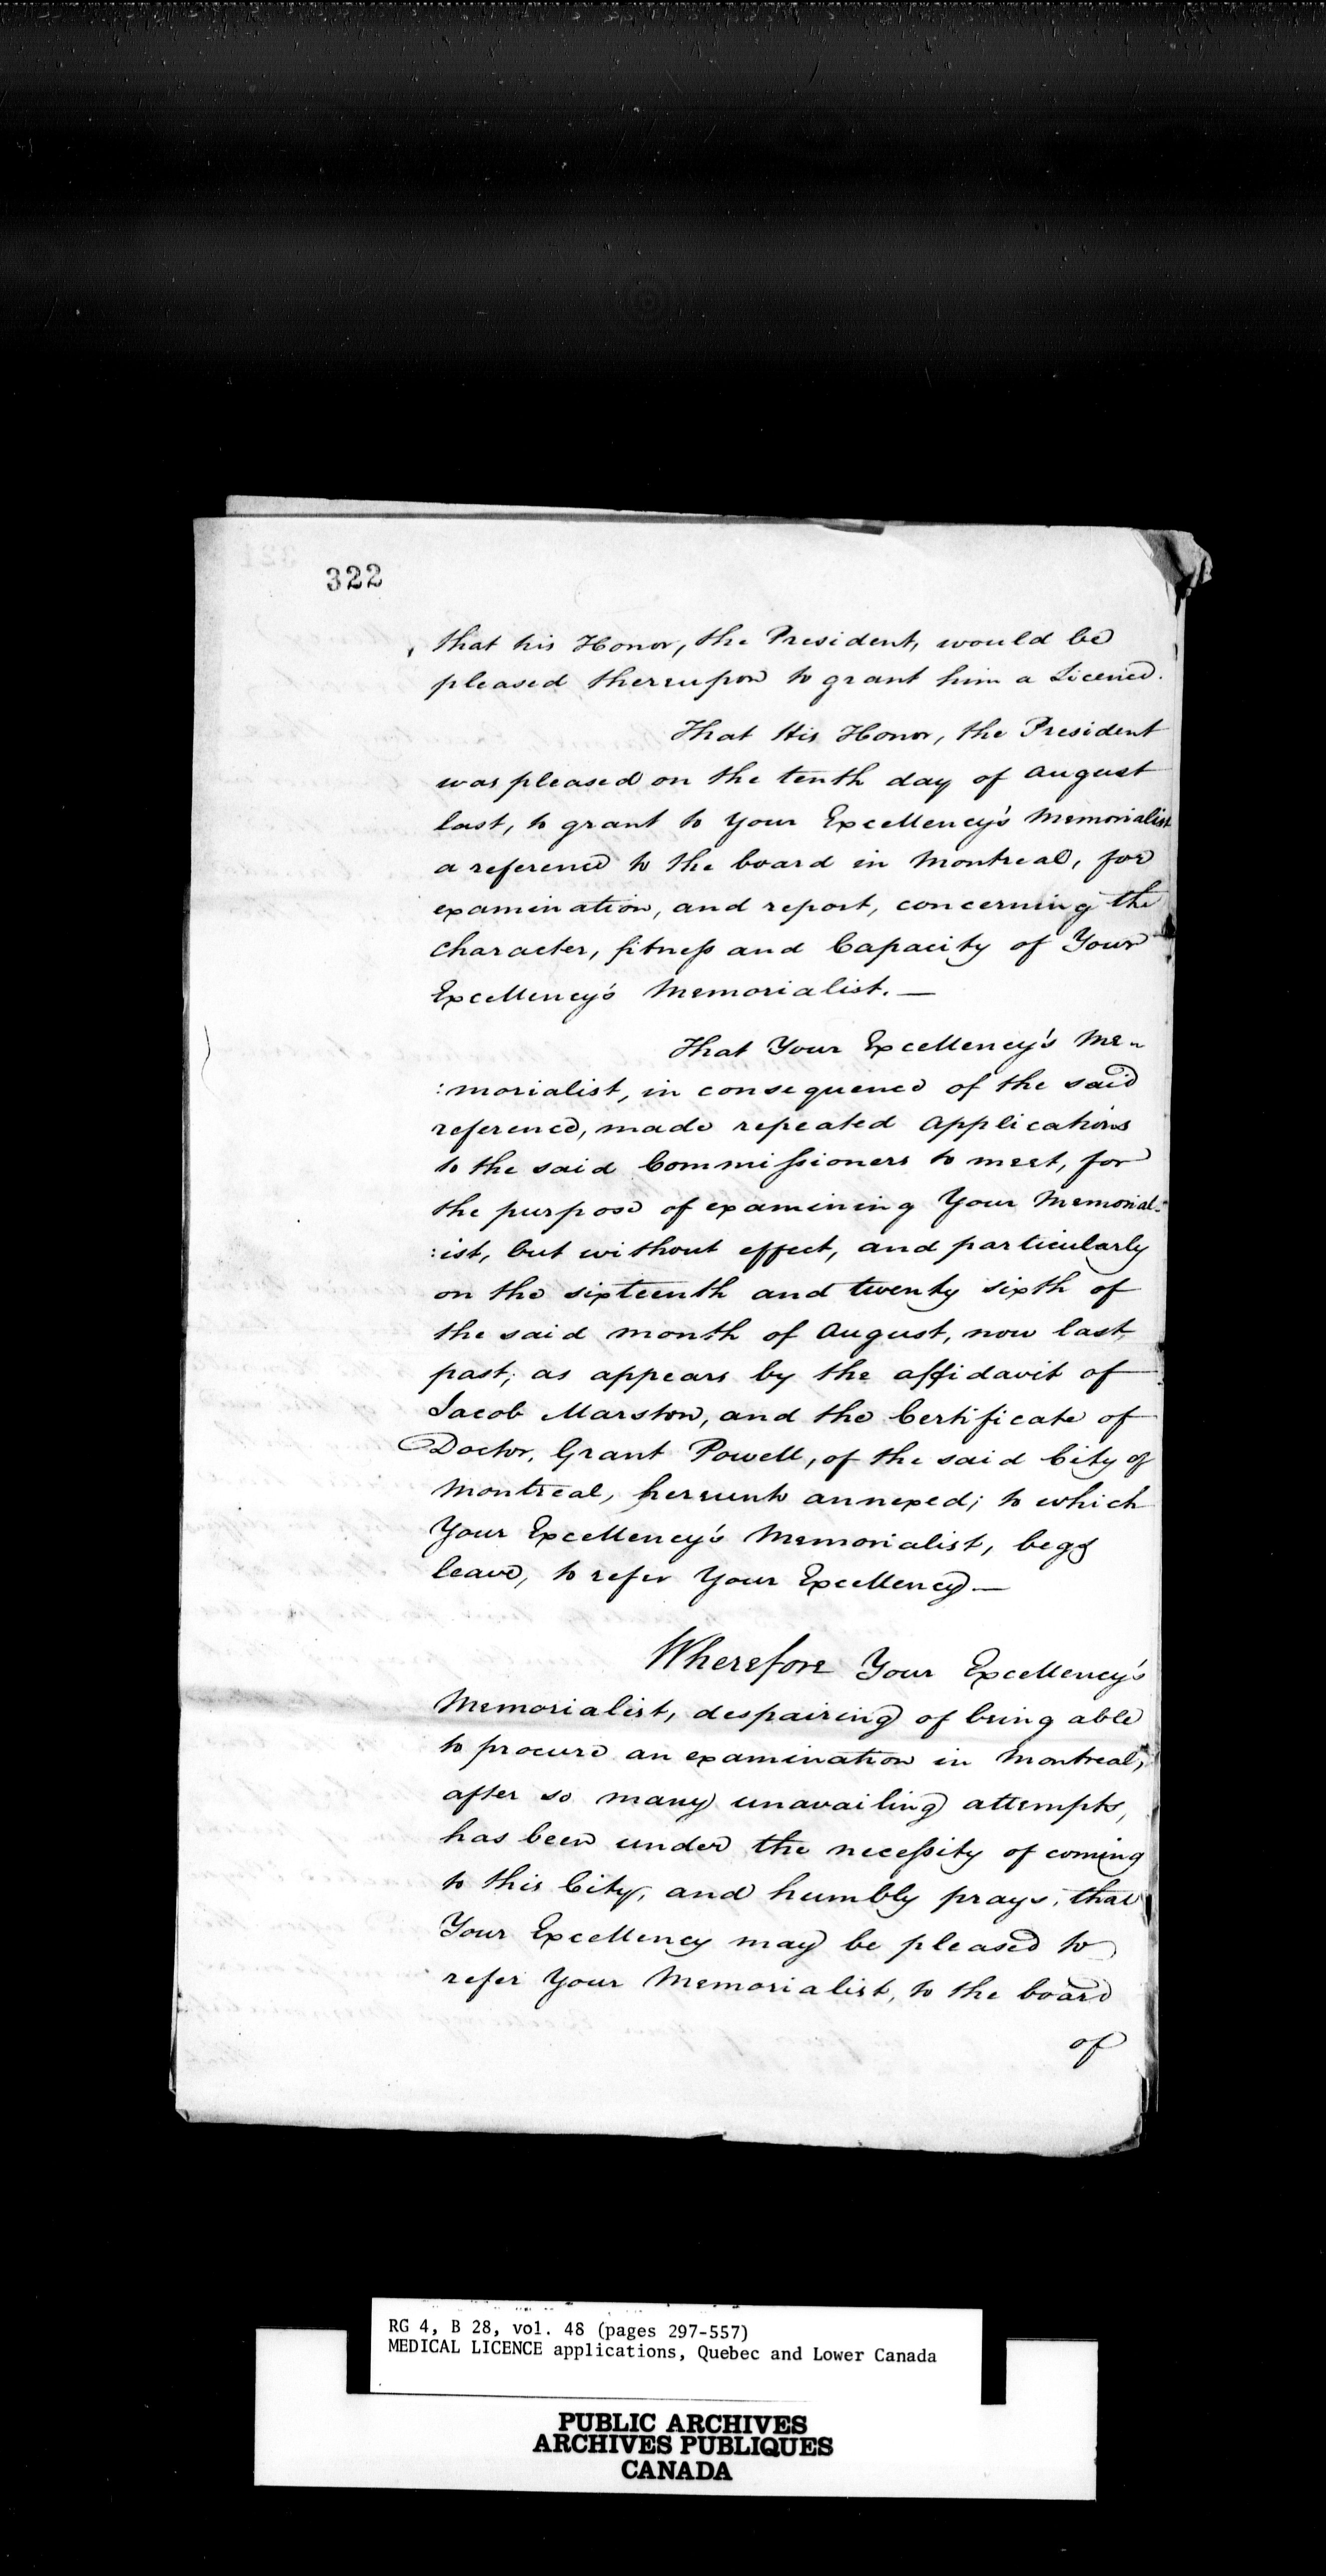 322
that his Honor, the President, would be
pleased thereupon to grant him a Licence.
That His Honor, the President
was pleased on the tenth day of August
last, to grant to Your Excellency's Memorialist
a reference to the board in Montreal, for
examination, and report, concerning the
Character, fitness and Capacity of Your
Excellency's Memorialist. —
That Your Excellency's Me-
:morialist, in consequence of the said
reference, made repeated applications
to the said Commissioners to meet, for
the purpose of examining Your Memorial-
:ist, but without effect, and particularly
on the sixteenth and twenty sixth of
the said month of August, now last
past; as appears by the affidavit of
Jacob Marston, and the Certificate of
Doctor, Grant Powell, of the said City of
Montreal, hereunto annexed; to which
Your Excellency's Memorialist, begs
leave, to refer Your Excellency —
Wherefore Your Excellency's
Memorialist, despairing of being able
to procure an examination in Montreal,
after so many unavailing attempts,
has been under the necessity of coming
to this City, and humbly prays, that
Your Excellency may be pleased to
refer Your Memorialist, to the board
of
RG 4, B 28, vol. 48 (pages 297-557)
MEDICAL LICENCE applications, Quebec and Lower Canada
PUBLIC ARCHIVES
ARCHIVES PUBLIQUES
CANADA